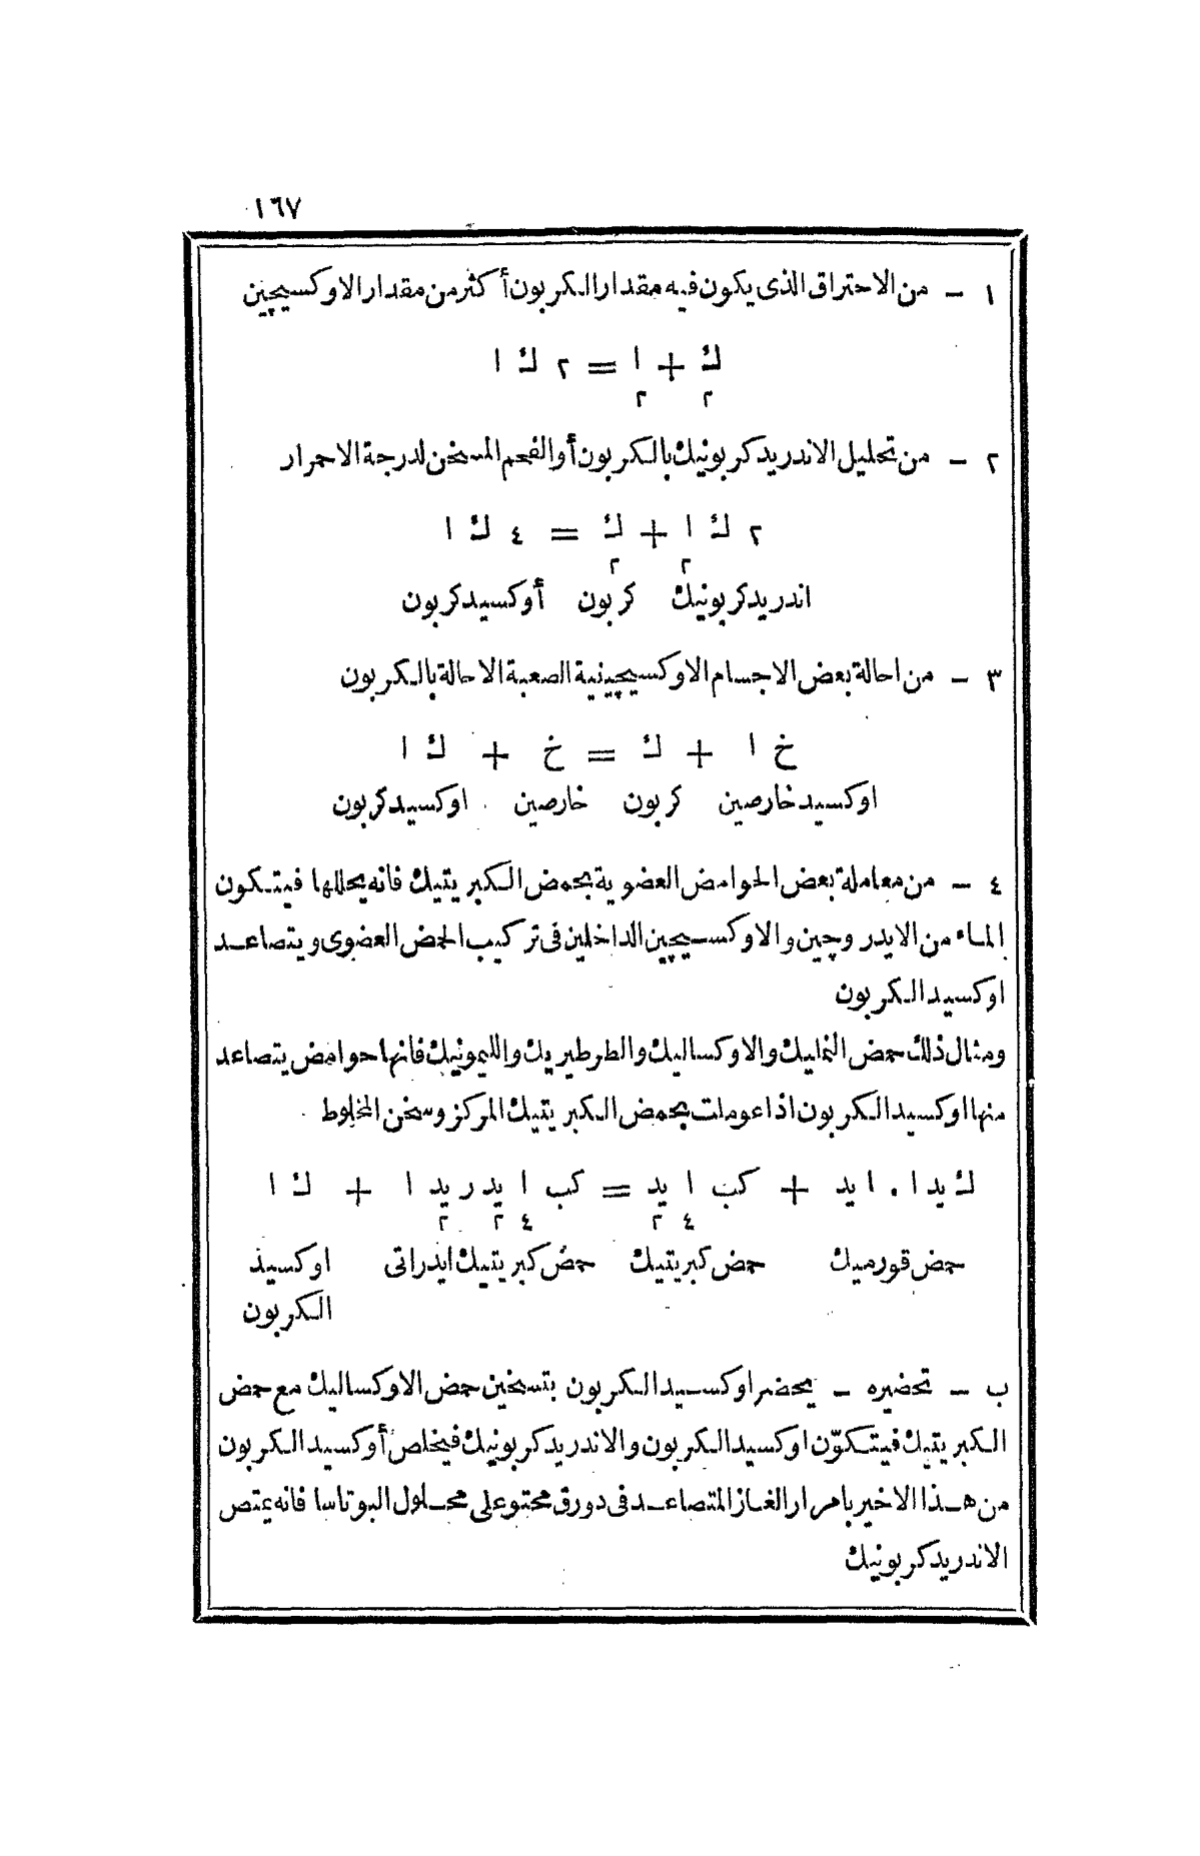 ١٦٧
١ – من الاحتراق الذى يكون فيه مقدار الكربون أكثر من مقدار الاوكسيچين
ك + ا = ٢ ك ا
٢ ٢
٢ – من تحليل الاندريد كربونيك بالكربون أو الفحم المسخن لدرجة الاحمرار
٢ ك ا + ك = ٤ ك ا
٢ ٢
اندريد كربونيك كربون أوكسيد كربون
٣ – من احالة بعض الاجسام الاوكسيچينية الصعبة الاحالة بالكربون
خ ا + ك = خ + ك ا
اوكسيد خارصين كربون خارصين اوكسيد كربون
٤ – من معاملة بعض الحوامض العضوية بحمض الكبريتيك فانه يحللها فيتكون
الماء من الايدروچين والاوكسيچين الداخلين فى تركيب الحمض العضوى ويتصاعد
اوكسيد الكربون
ومثال ذلك حمض النمليك والاوكساليك والطرطيريك والليمونيك فانها حوامض يتصاعد
منها اوكسيد الكربون اذا عوملت بحمض الكبريتيك المركز وسخن المخلوط
ك يد ا . ا يد + كب ا يد = كب ا يد ر يد ا + ك ا
٤ ٢ ٤ ٢ ٢
حمض فورميك حمض كبريتيك حمض كبريتيك ايدراتى اوكسيد
الكربون
ب – تحضيره – يحضر اوكسيد الكربون بتسخين حمض الاوكساليك مع حمض
الكبريتيك فيتكوّن اوكسيد الكربون والاندريد كربونيك فيخلص أوكسيد الكربون
من هذا الاخير بامرار الغاز المتصاعد فى دورق محتو على محلول البوتاسا فانه يمتص
الاندريد كربونيك